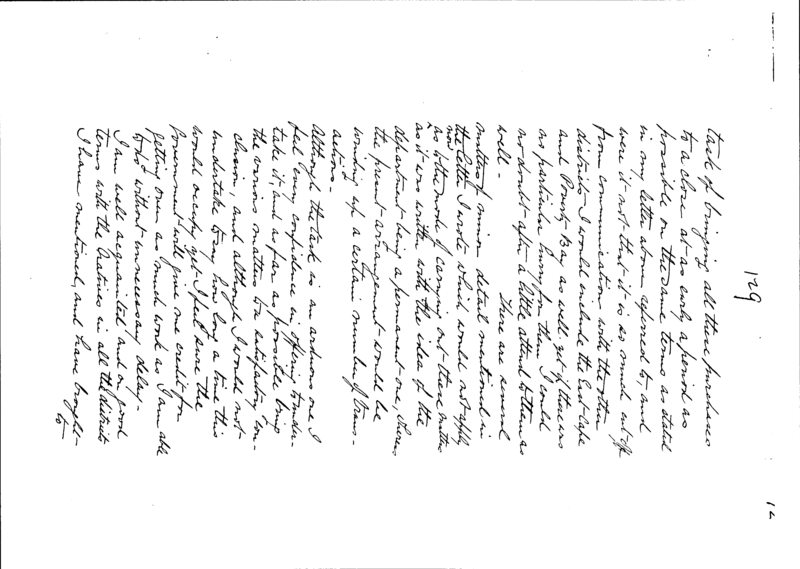 129
task of bringing all these purchases
to a close at as early a period as
possible on the same terms as stated
in my letter above referred to, and
were it not that it is so much cut off
from communication with the other
districts I would include the East Cape
and Poverty Bay as well yet if there is
no particular hurry for them I could
no doubt after a little attend to them as
well - There are several
matters of minor detail mentioned in
the letter I wrote which would not apply
now
as to the mode of carrying out those matters
as it was written with the idea of the
department being a permanent one, whereas
the present arrangement would be
winding up a certain number of trans-
actions -
Although the task is an arduous one I
feel every confidence in offering to under-
take it, and as far as possible bring
the various matters to a satisfactory con-
clusion, and although I would not
undertake to say how long a time this
would occupy yet I feel sure the
Government will give me credit for
getting over as much work as I am able
to do without unnecessary delay -
I am well acquainted and on good
terms with the Natives in all the districts
I have mentioned, and have brought
to
12